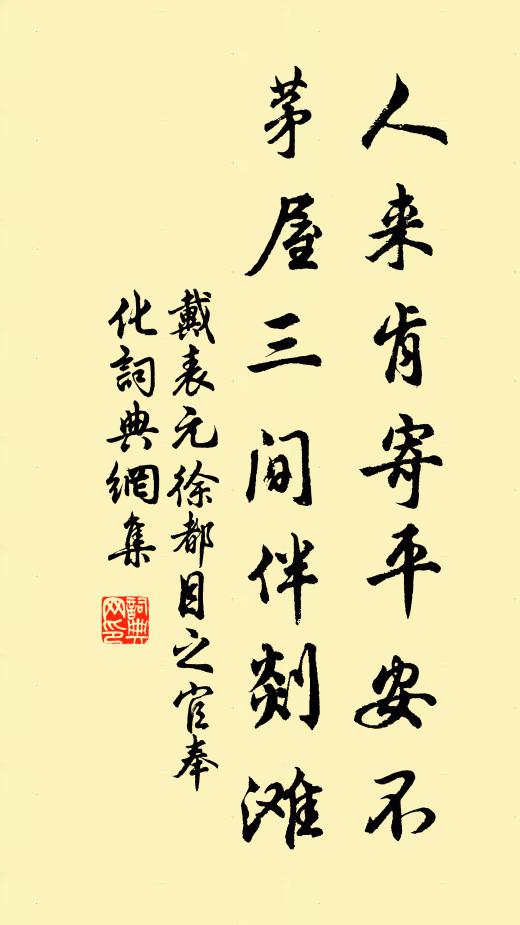 人来肯寄平安不
茅屋三间伴剡滩
戴表元徐都目之官奉
化詞典網集
詞典
网印